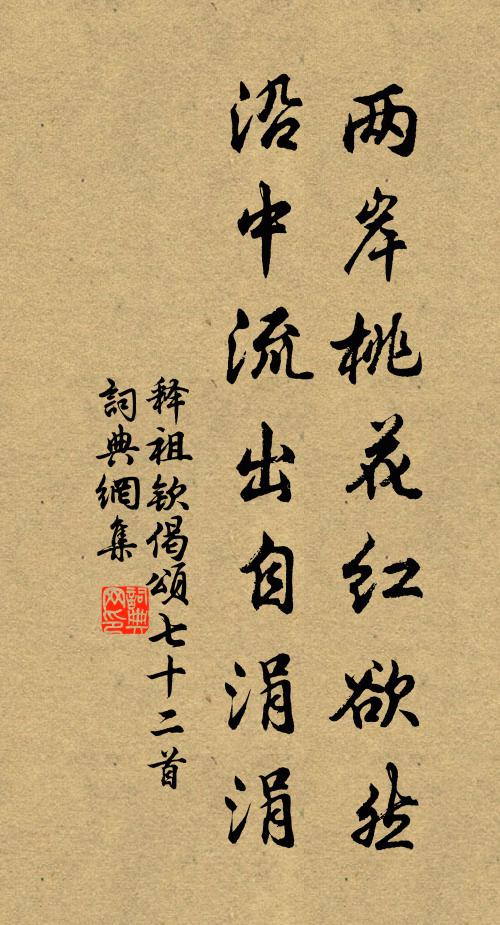 两岸桃花红欲然
沿中流出自涓涓
释祖钦偈頌七十二首
詞典網集
詞典
网印